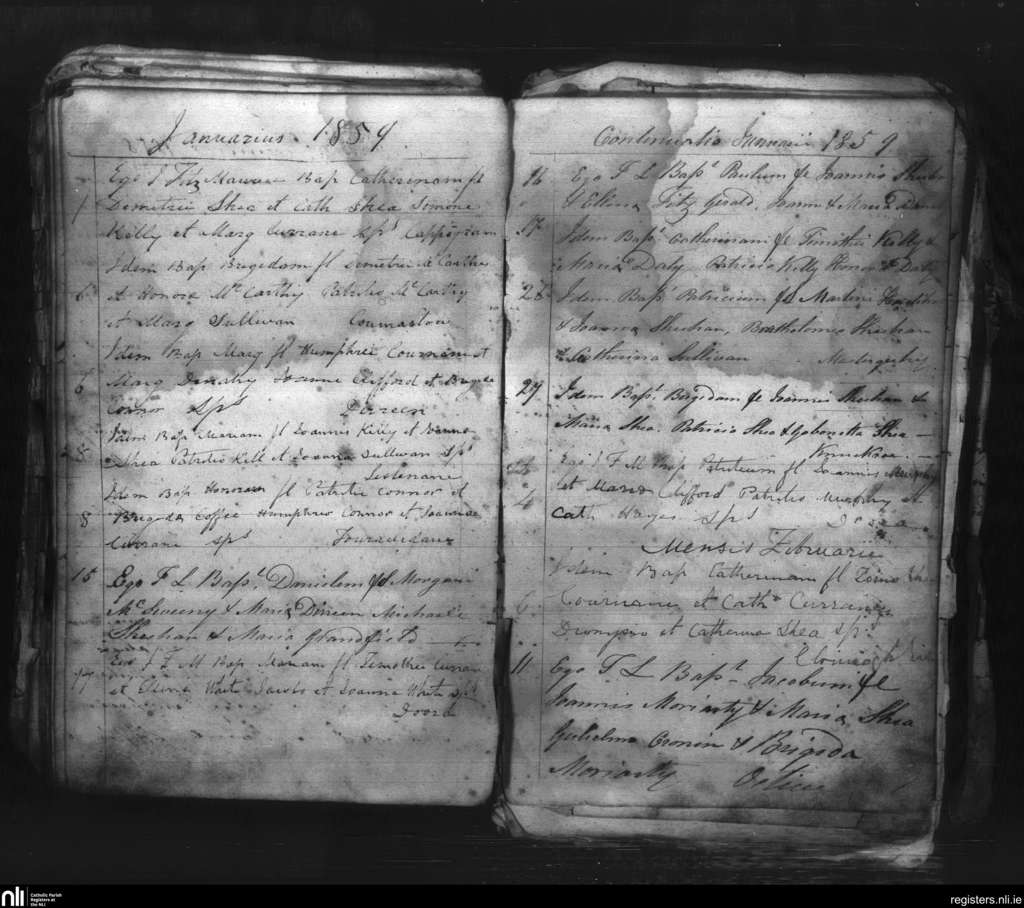 Januarius 1859
Ego J FitzMaurice Bap Catherinam fl
1 Demetrii Shea et Cath Shea Simone
Killy et Marg Currane Sps Cappagram
Idem Bap Brigidam fl Demetrii McCarthy
6 et Honora McCarthy Patritio McCarthy
et Marg Sullivan
Idem Bap Marg fl Humphrei Cournane et
6 Marg Joanne Clifford et Brigida
Connor Sps Direen
Idem Bap Mariam fl Joannis Killy et Joanna
8 Shea Patritio Kill et Joanna Sullivan Sps
Idem Bap Honoram fl Patritii Connor et
8 Brigida Coffee Humphreo Connor et Joanna
Currane Sps
15 Ego F L Bapt. Danielem fl Morgani
McSweeny & Maria Dineen Michaele
Sheehan & Maria Glandfield
17 Ego J F M Bap Mariam fl Timothei Curran
et Elena White Jacobo et Joanna White Sps
Doora
Continuatio Januarii 1859
16 Ego F L Bapt Paulum fl Joannis Sheehan
& Ellena Fitz Gerald, Joanne & Maria
17 Idem Bapt. Catherinam fl Timithei Killy &
Maria Daly Patricio Killy Honora Daly
26 Idem Bapt Patricium fl Martini
& Joanna Sheehan, Bartholomeo Sheehan
& Catherina Sullivan
27 Idem Bapt. Brigidam fl Joannis Sheehan &
Maria Shea. Patricio Shea & Gobonetta Shea
Ego J F M Bap Patritium fl Joannis Murphy
4 et Maria Clifford Patritio Murphy et
Cath Hayes Sps
Mensis Februarii
Idem Bap Catherinam fl
6 Cournane et Cath Currane
Dionysio et Catherina Shea Sps
11 Ego F L Bapt Jacobum fl
Joannis Moriarty & Maria Shea
Gulielmo Cronin & Brigida
Moriarty
nli Catholic Parish
Registers at
the NLI
registers.nli.ie